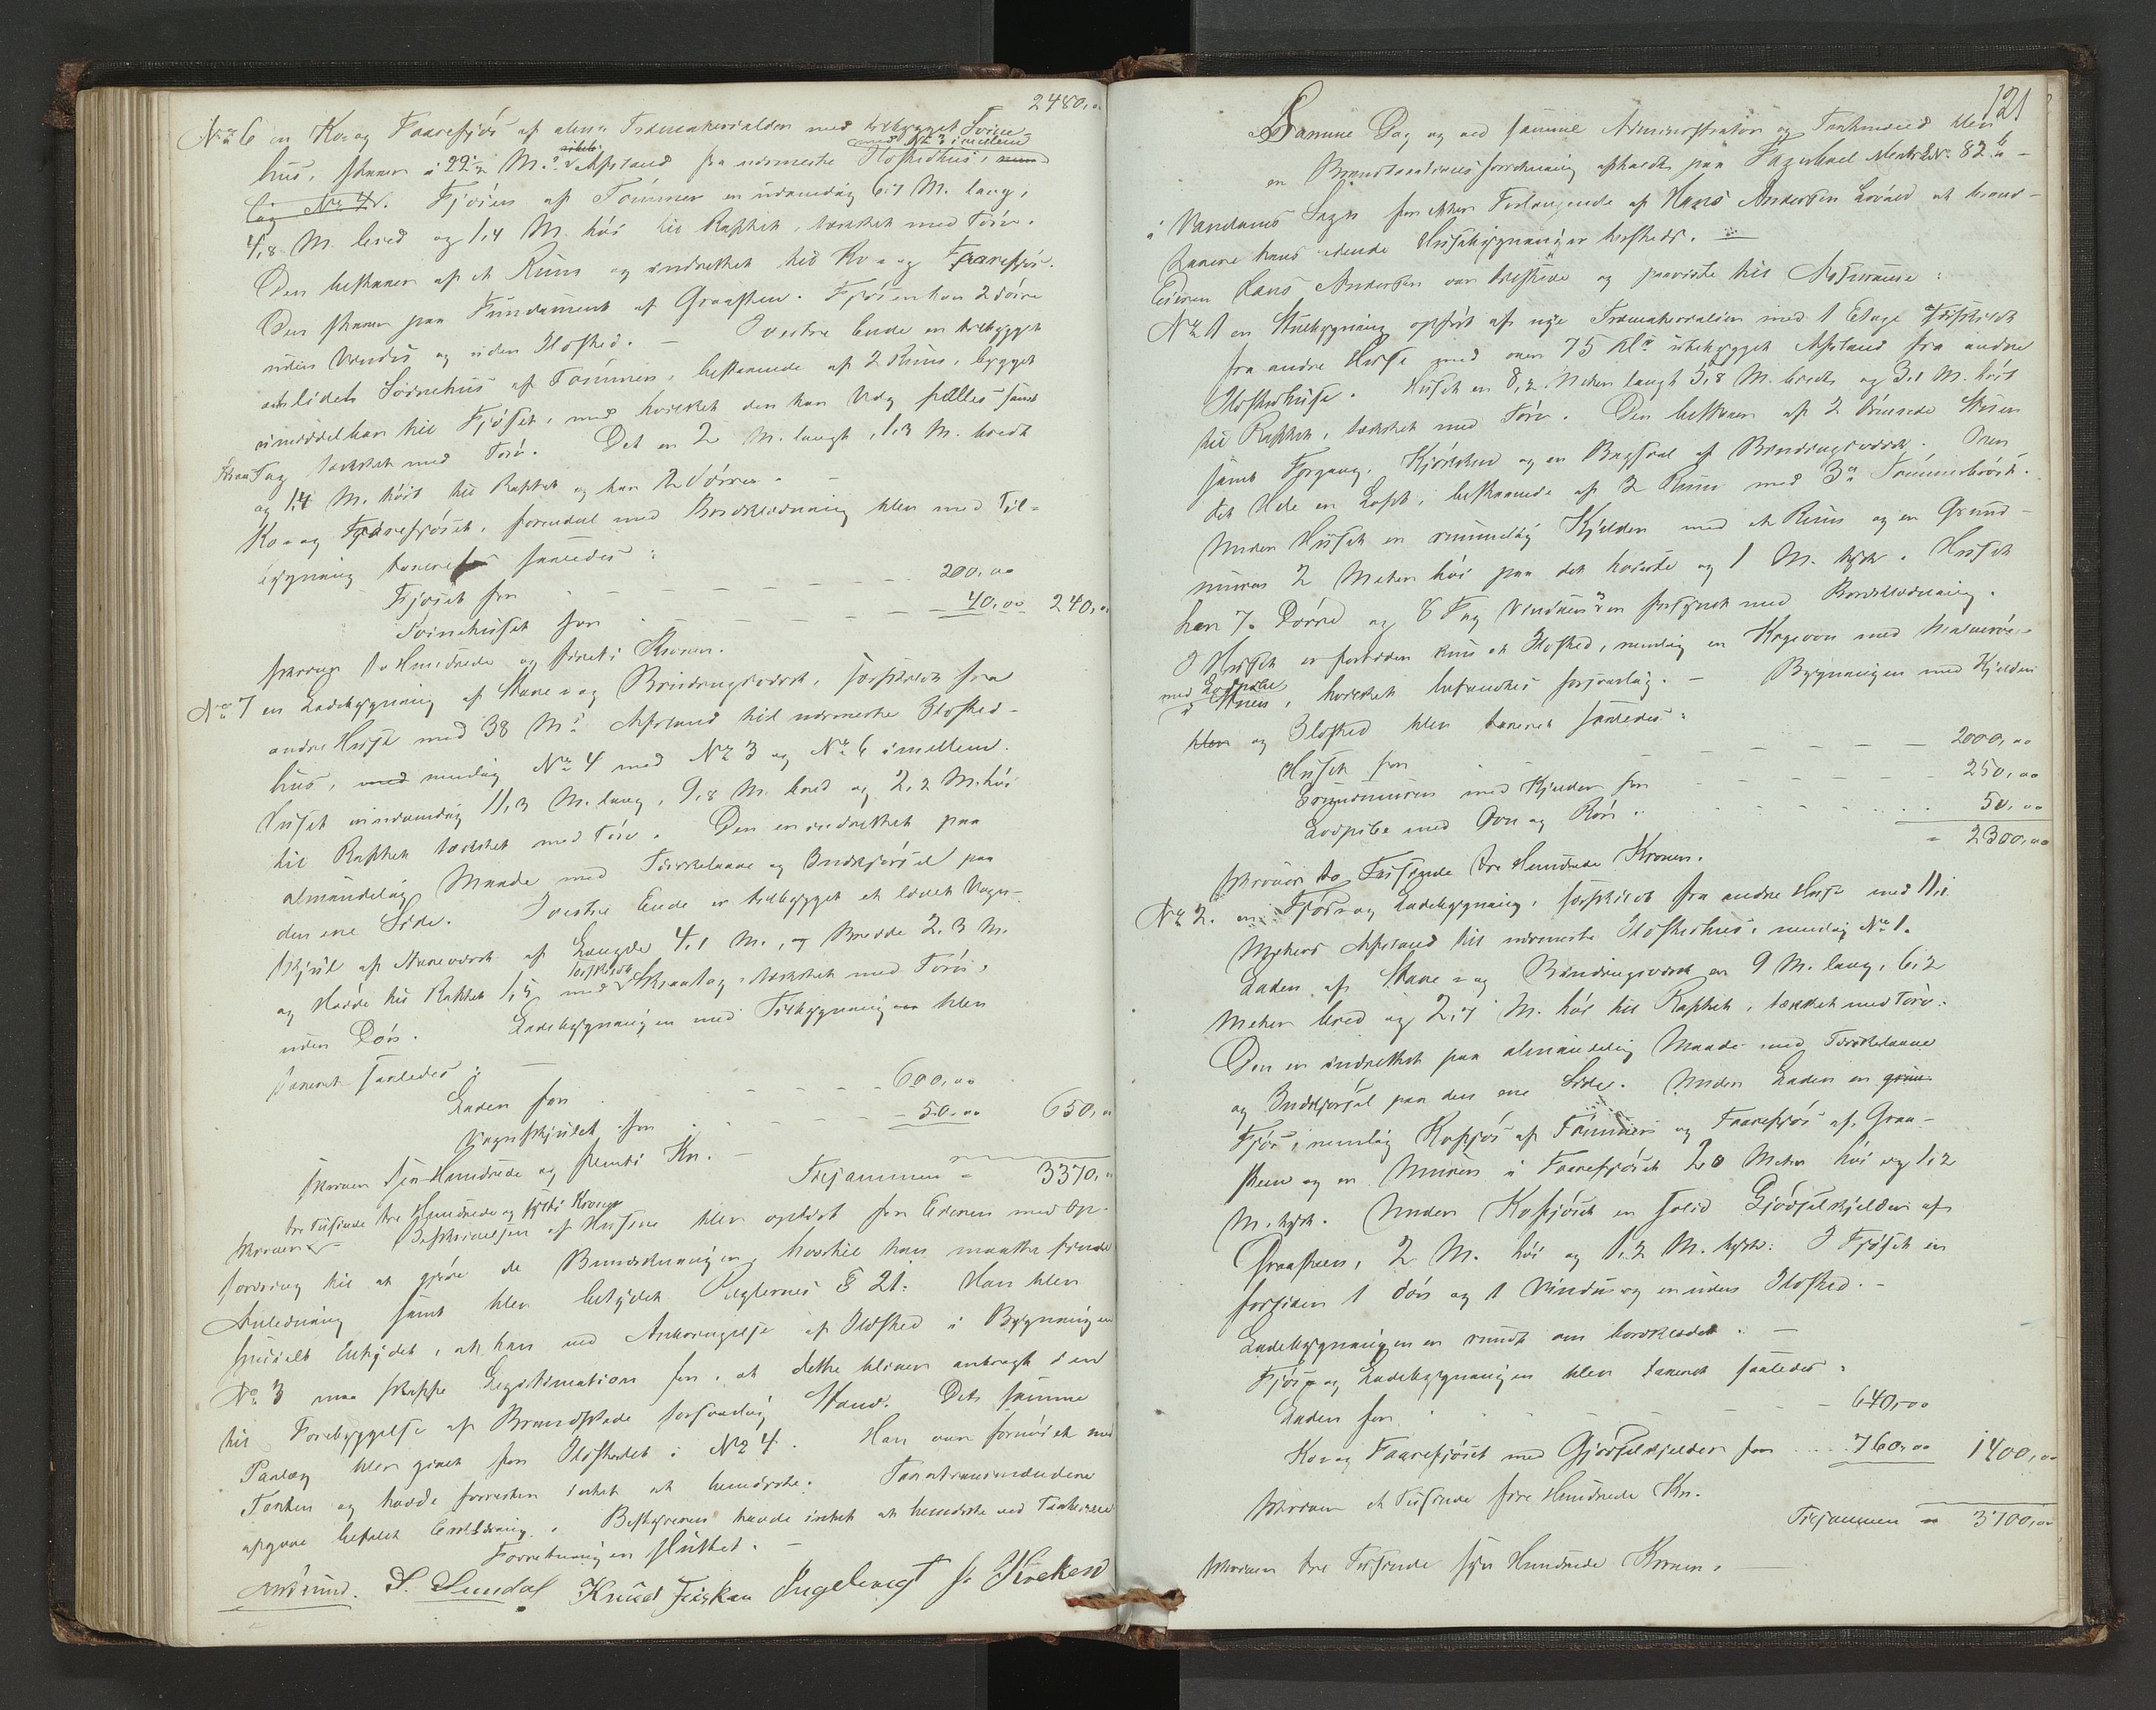 2480,00
No 6 en Ko- og Faarefjøs af alm. Træmaterialier med tilbygget Svine-
hus, staaer i 22 M. Afstand fra nærmeste Ildstedhus,
med No 3 imellem
Fjøsen af Tømmer er udvendig 6,1 M. lang,
4,8 M. bred og 1,4 M. høi til Raftet, tækket med Torv.
Den bestaaer af et Rum og indrettet til Ko- og Faarefjøs.
Den staaer paa Fundament af Graasten. Fjøsen har 2 Døre
uden Vindu og uden Ildsted. – I vestre Ende er tilbygget
et lidet Svinehus af Tømmer, bestaaende af 2 Rum, bygget
umiddelbar til Fjøset, med hvilket den har Væg fælles samt
Tag tækket med Torv. Det er 2 M. langt, 1,3 M. bredt
og 1,4 M. høit til Raftet og har 2 Dörre. –
Ko- og Faarefjøset, forsynet med Bordklædning blev med Til-
bygning taxeret saaledes:
Fjøset for 200,00
Svinehuset for 40,00 240,00
skriver to Hundrede og firti Kroner.
No 7 en Ladebygning af Stave- og Bindingsværk, særskilt fra
andre Huse med 38 M. Afstand til nærmeste Ildsted-
hus, med nemlig No 4 med No 3 og No 6 imellem.
Huset er indvendig 11,3 M. lang, 9,8 M. bred og 2,2 M. høi
til Raftet tækket med Torv. Den er indrettet paa
almindelig Maade med Tærskelaave og Indkjørsel paa
den ene Side. I vestre Ende er tilbygget et lidet Vogn-
skjul af Staveværk af Længde 4,1 M., og Bredde 2,3 M.
og Høide til Raftet 1,5 med særskilt Skraatag tækket med Torv,
uden Dör. Ladebygningen med Tilbygningen blev
taxeret saaledes: –
Laden for 600,00
Vognskjulet for 50,00 650,00
skriver sex Hundrede og femti Kr. –
Tilsammen = 3370,00
skriver tre Tusinde tre Hundrede og sytti Kroner
Beskrivelsen af Husene blev oplæst for Eieren med Op-
fordring til at gjøre de Bemærkninger, hvortil han maatte finde
Anledning samt blev betydet Reglernes § 21. Han blev
specielt betydet, at han ved Anbringelse af Ildsted i Bygningen
No 3 maa skaffe Legitimation for, at dette bliver anbragt i en
til Forebyggelse af Brandskade forsvarlig Stand. Det samme
Paalæg blev givet for Ildstedet i No 4. Han var fornøiet med
Taxten og havde forresten intet at bemærke. Taxationsmændene
afgave befalet Erklæring. Bestyreren havde intet at bemærke ved Taxterne
Forretningen sluttet. –
S. Lundal Knud Ingebregt Kirkerud
121
Samme Dag og ved samme Administration og Taxtmænd blev
en Brandtaxationsforretning afholdt paa Matr. No. 82
i Vardams Sogn foretaget efter Forlangende af Hans Andersen at brand-
taxere hans eiende Husebygninger bestede. –
Eieren Hans Andersen var tilstede og paaviste til Assurance:
No 1 en Stuebygning opført af nye Træmaterialier med 1 Etage særskilt
fra andre Huse med over 75 M. ubebygget Afstand fra andre
Ildstedhuse. Huset er 8,2 Meter langt 5,8 M. bredt og 3,1 M. høit
til Raftet, tækket med Torv. Den bestaaer af 2 Stuer
samt Forgang, Kjøkken og en Bagsval af Bindingsværk. Over
det Hele en Loft, bestaaende af 2 Rum med 3
Under Huset er rummelig Kjelder med et Rum og en Grund-
muren 2 Meter høi paa det høieste og 1 M. tyk. Huset
har 7 Dörre og 8 Fag Vinduer er forsynet med Bordklædning.
I Huset er for Tiden kun et Ildsted, nemlig en Kogeovn med
med Lodpibe
i Stuen, hvilket befandtes forsvarlig. – Bygningen med Kjelder
blev og Ildsted blev taxeret saaledes:
Huset for 2000,00
Grundmuren med Kjelder for 250,00
Lodpibe med Ovn og Rør 50,00
= 2300,00
skriver to Tusinde tre Hundrede Kroner.
No 2. en Fjøs- og Ladebygning, særskilt fra andre Huse med 11,1
Meters Afstand til nærmeste Ildstedhus, nemlig No 1.
Laden af Stave- og Bindingsværk er 9 M. lang, 6,2
Meter bred og 2,7 M. høi til Raftet, tækket med Torv.
Den er indrettet paa almindelig Maade med Tærskelaave
og Indkjørsel paa den ene Side. Under Laden er
Fjøs, nemlig Kofjøs af Tømmer og Faarefjøs af Graa-
sten og er Muren i Faarefjøset 2,0 Meter høi og 1,2
M. tyk. Under Kofjøset en solid Gjødselkjelder af
Graasten, 2 M. høi og 1,2 M. tyk. I Fjøset er
forsiden 1 Dör og 1 Vindu og er uden Ildsted. –
Ladebygningen er rundt om bordklædet. –
Fjøs- og Ladebygningen blev taxeret saaledes:
Laden for 640,00
Ko- og Faarefjøset med Gjødselkjelder for 760,00 1400,00
skriver et Tusinde fire Hundrede Kr.
Tilsammen = 3700,00
skriver tre Tusinde syv Hundrede Kroner.